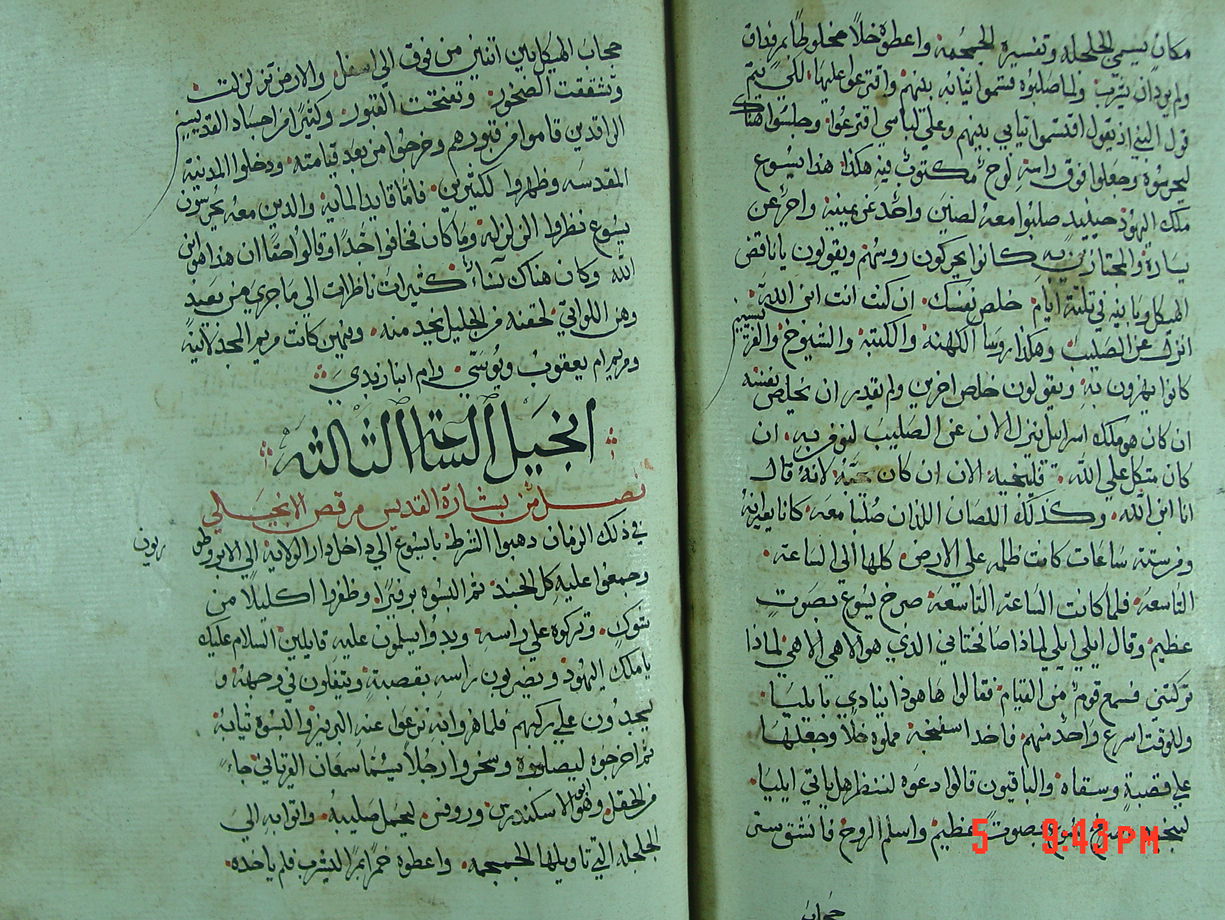 مكان يسمي الجلجله وتفسيره الجمجمة واعطوه خلاً مخلوطا بمر فذاق
ولم يرد ان يشرب ولما صلبوه قسموا ثيابه بينهم واقترعوا عليها لكي يتم
قول النبي اذ يقول اقتسموا ثيابي بينهم وعلي لباسي اقترعوا وجلسوا هناك
ليحرسوه وجعلوا فوق راسه لوح مكتوب فيه هكذا هذا يسوع
ملك اليهود حينيد صلبوا معه لصين واحد عن يمينه واخر عن
يساره والمجتازين به كانوا يحركون روسهم ويقولون يا ناقض
الهيكل وبانيه في ثلثة ايام خلص نفسك ان كنت انت ابن الله
انزل عن الصليب وهكذا روسا الكهنه والكتبه والشيوخ والفريسيين
كانوا يهزون به ويقولون خلص اخرين ولم يقدر ان يخلص نفسه
ان كان هو ملك اسراييل ينزل الان عن الصليب لنومن به ان
كان متكل علي الله فلينجيه الان ان كان يحبه لانه قال
انا ابن الله وكدلك اللصان اللذان صلبا معه كانا يعيرانه
ومن ستة ساعات كانت ظلمه علي الارض كلها الي الساعة
التاسعه فلما كانت الساعة التاسعه صرخ يسوع بصوت
عظيم وقال ايلي ايلي لماذا صافختاني الذي هو الاهي الاهي لماذا
تركتني فسمع قوم من القيام فقالوا هاهوذا ينادي بايليا
وللوقت اسرع واحد منهم فاخد اسفنجة مملوه خلاً وجعلها
علي قصبة وسقاه والباقيون قالوا دعوه لننظر هل ياتي ايليا
بصوت عظيم واسلم الروح فانشق ستر
حجاب
حجاب الهيكل بين اثنين من فوق الي اسفل والارض تزلزلت
وتشققت الصخور وتفتحت القبور وكثيرًا من اجساد القديسين
الراقدين قاموا من قبورهم وخرجوا من بعد قيامته ودخلوا المدينة
المقدسه وظهروا لكثيرين فامّا قايد الماية والذين معه يحرسون
يسوع نظروا الزلزله وما كان فخافوا جدًا وقالوا حقًا ان هذا هو ابن
الله وكان هناك نساء كثيرات ناظرات الي ما جري من بعيد
وهن اللواتي لحقنه من الجليل يخدمنه ومنهن كانت مريم المجدلانية
ومريم ام يعقوب ويوسي وام ابنا زبدي
انجيل الساعة الثالثه
فصل من بشارة القديس مرقص الانجيلي
في ذلك الزمان دهبوا الشرط بايسوع الي داخل دار الولاية الي الابروطوريون
وجمعوا عليه كل الجند ثم البسوه برفيرًا وظفروا اكليلاً من
شوك وتركوه علي راسه وبدوا يسلمون عليه قايلين السلام عليك
يا ملك اليهود ويضربون راسه بقصبة ويتفلون في وجهه و
يسجدون علي ركبهم فلما هزوا به نزعوا عنه البرفير والبسوه ثيابه
ثم اخرجوه ليصلبوه وسخروا رجلاً يسما سمعان القيرياني جاء
من الحقل وهو ابو الاسكندرس وروفس ليحمل صليبه واتوا به الي
الجلجله التي تاويلها الجمجمه واعطوه خمرًا بمر ليشرب فلم ياخده
5 9:43PM